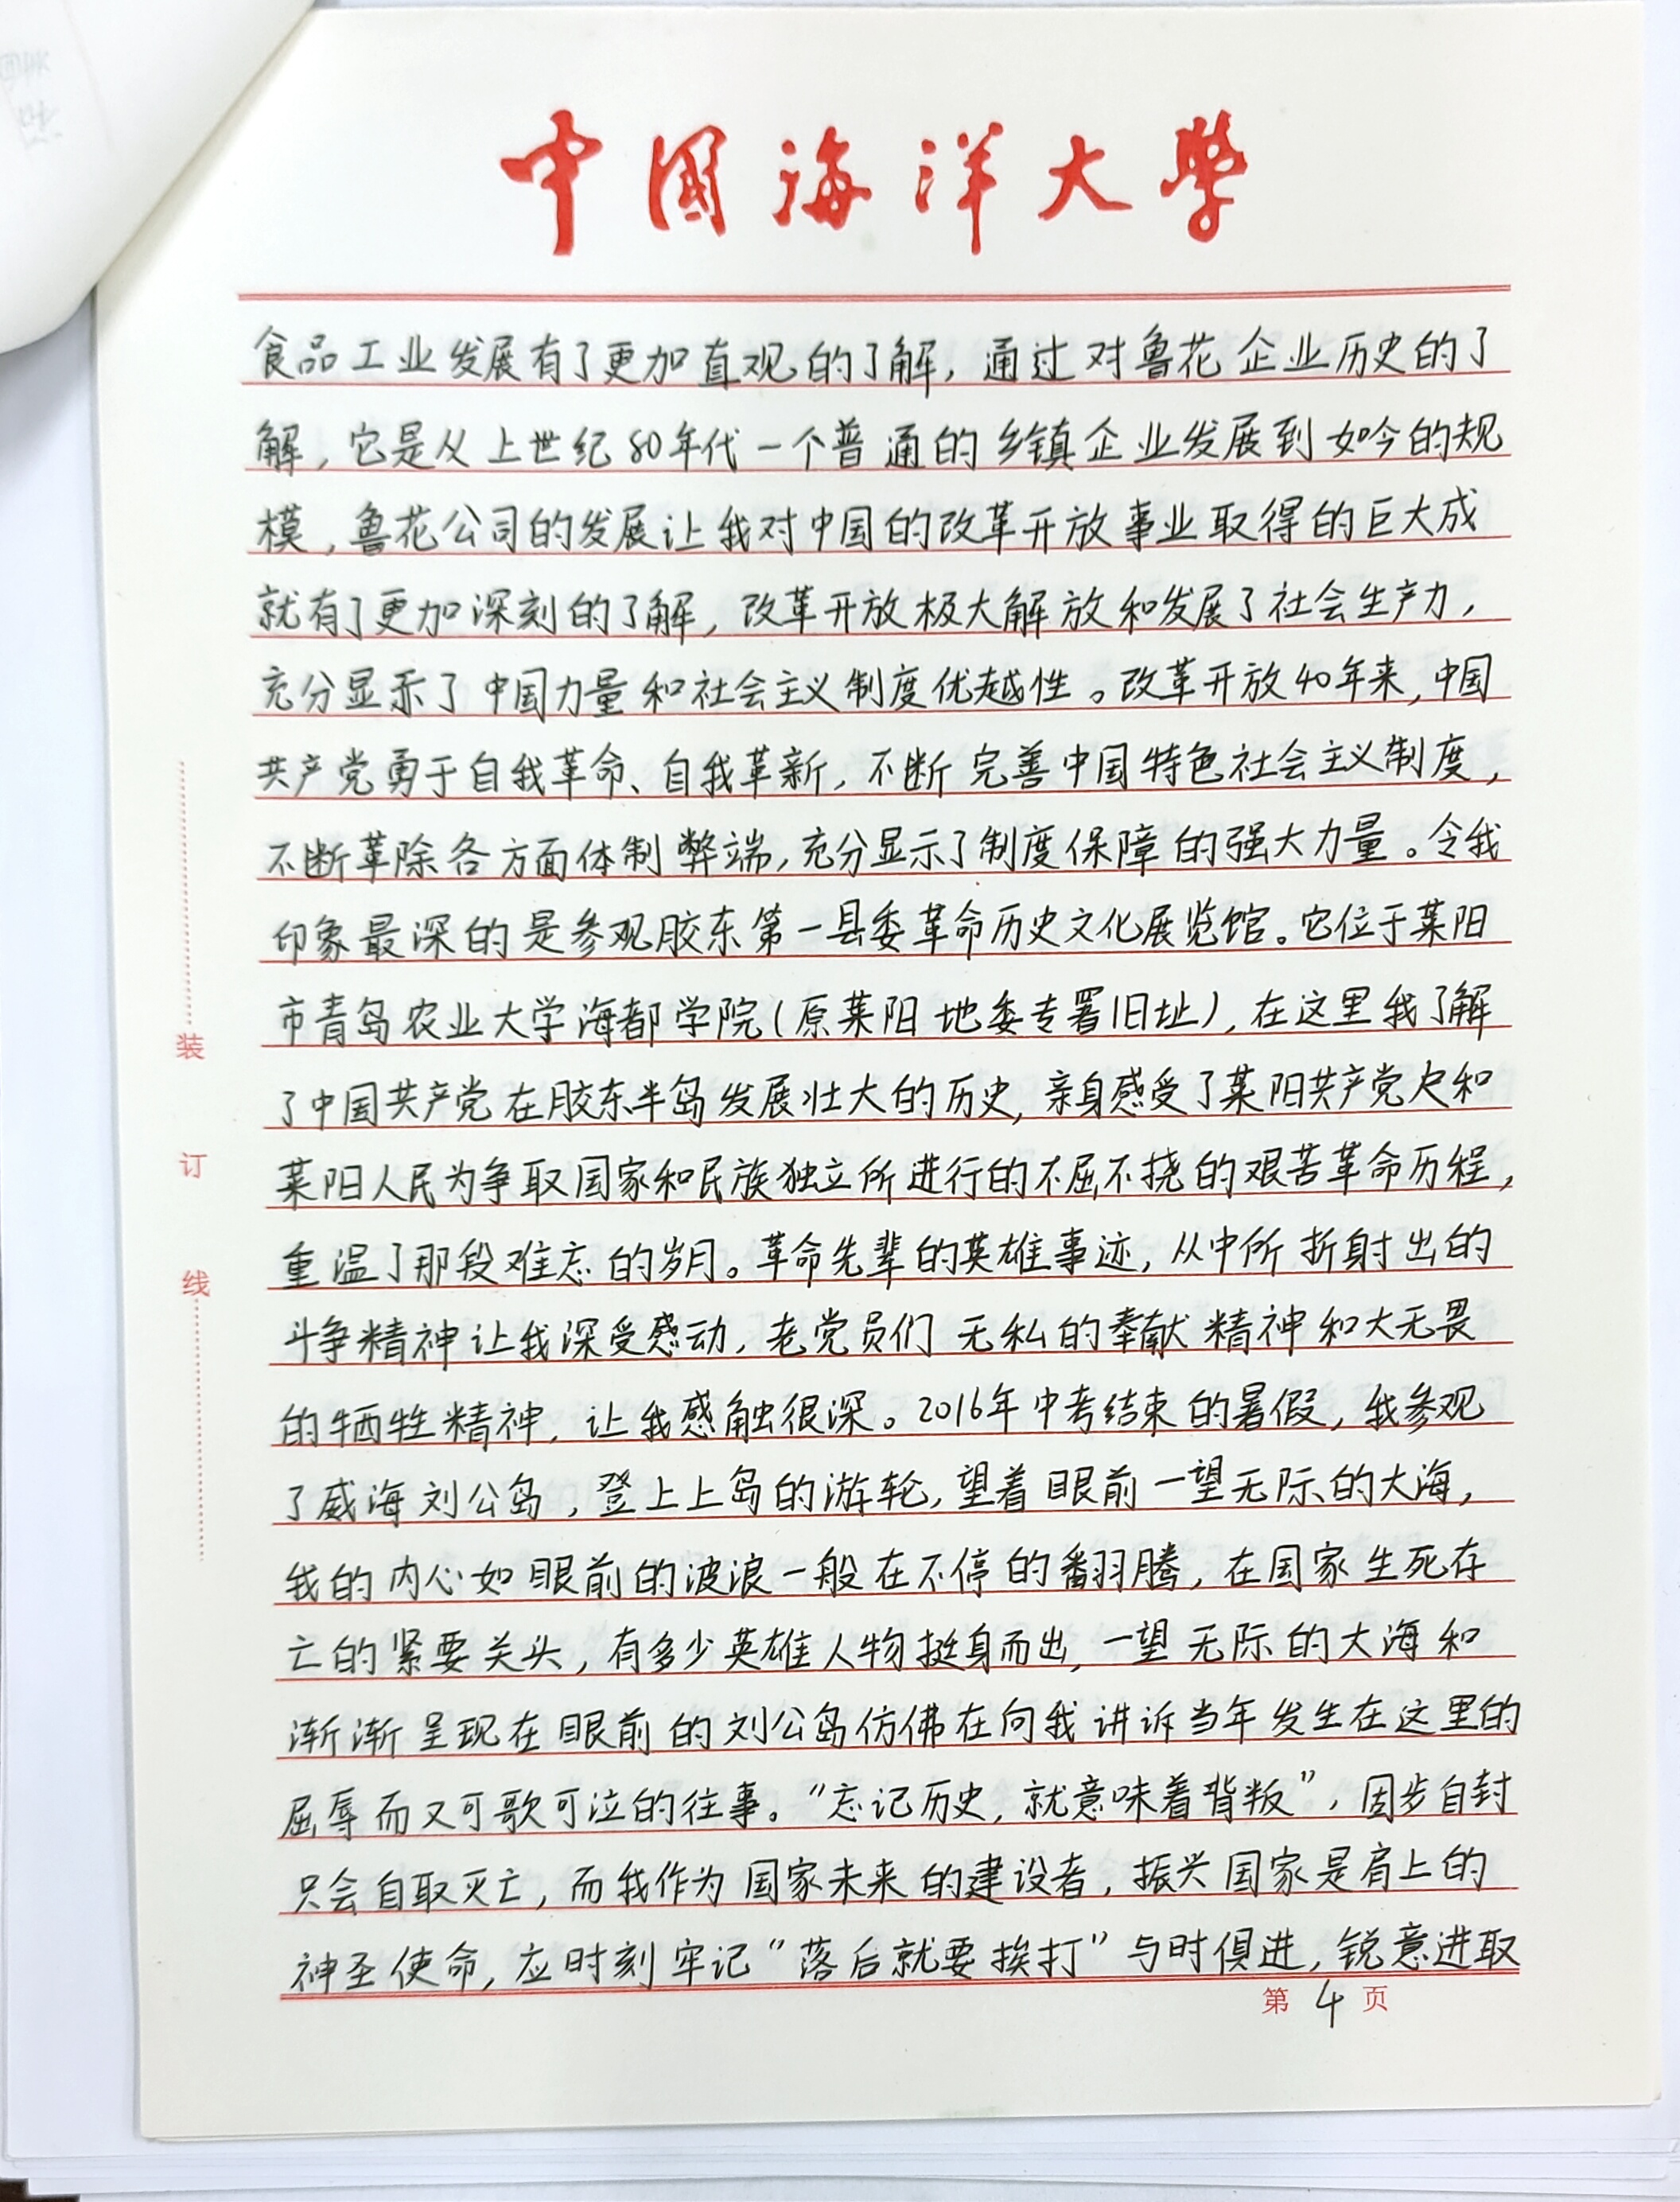 中国海洋大学
食品工业发展有了更加直观的了解，通过对鲁花企业历史的了
解，它是从上世纪80年代一个普通的乡镇企业发展到如今的规
模，鲁花公司的发展让我对中国的改革开放事业取得的巨大成
就有了更加深刻的了解，改革开放极大解放和发展了社会生产力，
充分显示了中国力量和社会主义制度优越性。改革开放40年来，中国
共产党勇于自我革命、自我革新，不断完善中国特色社会主义制度，
不断革除各方面体制弊端，充分显示了制度保障的强大力量。令我
印象最深的是参观胶东第一县委革命历史文化展览馆。它位于莱阳
市青岛农业大学海都学院（原莱阳地委专署旧址），在这里我了解
了中国共产党在胶东半岛发展壮大的历史，亲身感受了莱阳共产党人和
莱阳人民为争取国家和民族独立所进行的不屈不挠的艰苦革命历程，
重温了那段难忘的岁月。革命先辈的英雄事迹，从中所折射出的
斗争精神让我深受感动，老党员们无私的奉献精神和大无畏
的牺牲精神，让我感触很深。2016年中考结束的暑假，我参观
了威海刘公岛，登上上岛的游轮，望着眼前一望无际的大海，
我的内心如眼前的波浪一般在不停的翻腾，在国家生死存
亡的紧要关头，有多少英雄人物挺身而出，一望无际的大海和
渐渐呈现在眼前的刘公岛仿佛在向我讲诉当年发生在这里的
屈辱而又可歌可泣的往事。“忘记历史，就意味着背叛”，固步自封
只会自取灭亡，而我作为国家未来的建设者，振兴国家是肩上的
神圣使命，应时刻牢记“落后就要挨打”与时俱进，锐意进取
第4页
装订线